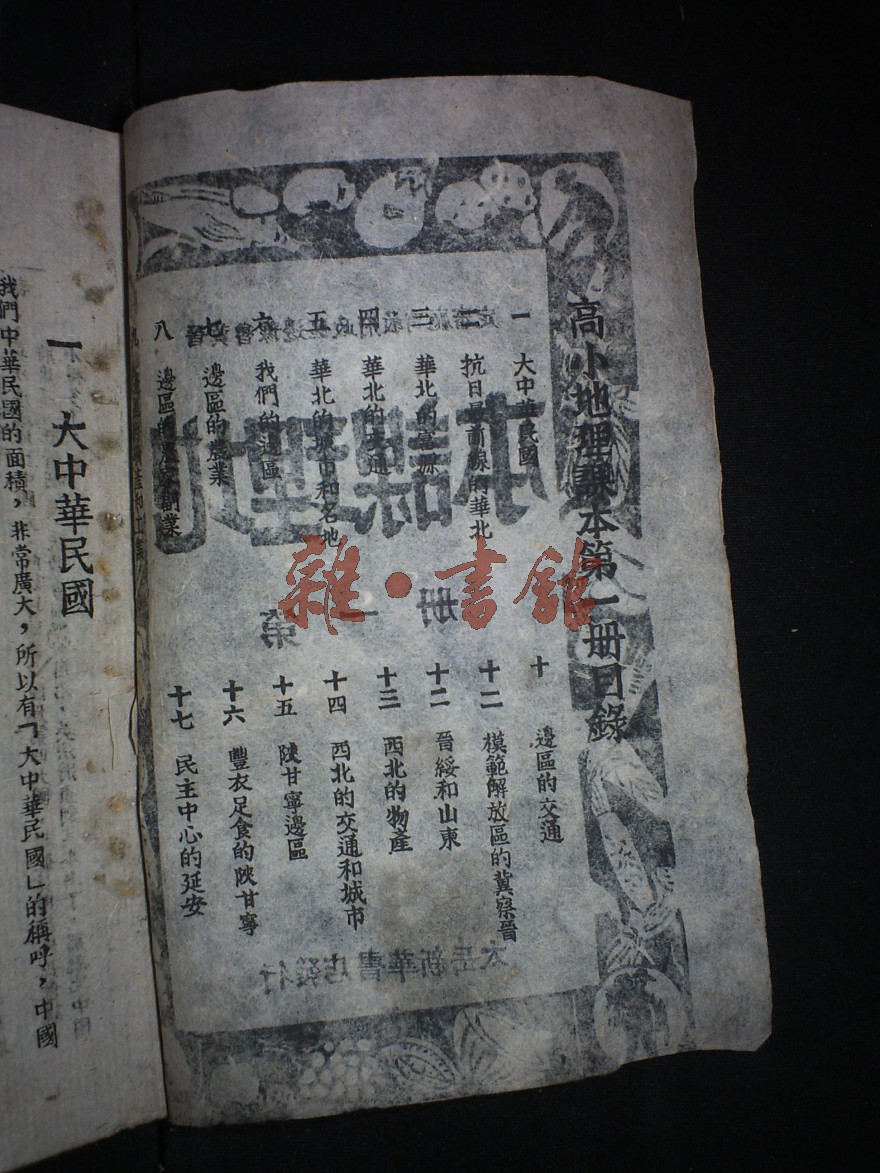 高小地理課本第一册目錄
一 大中華民國
二 抗日最前線的華北
三 華北的富源
四 華北的交通
五 華北的城市和名地
六 我們的邊區
七 邊區的農業
八 邊區的農家副業
十 邊區的交通
十二 模範解放區的冀察晉
十二 晉綏和山東
十三 西北的物產
十四 西北的交通和城市
十五 陝甘寧邊區
十六 豐衣足食的陝甘寧
十七 民主中心的延安
第一册
太岳新華書店發行
雜·書館
一 大中華民國
我們中華民國的面積，非常廣大，所以有「大中華民國」的稱呼，中國